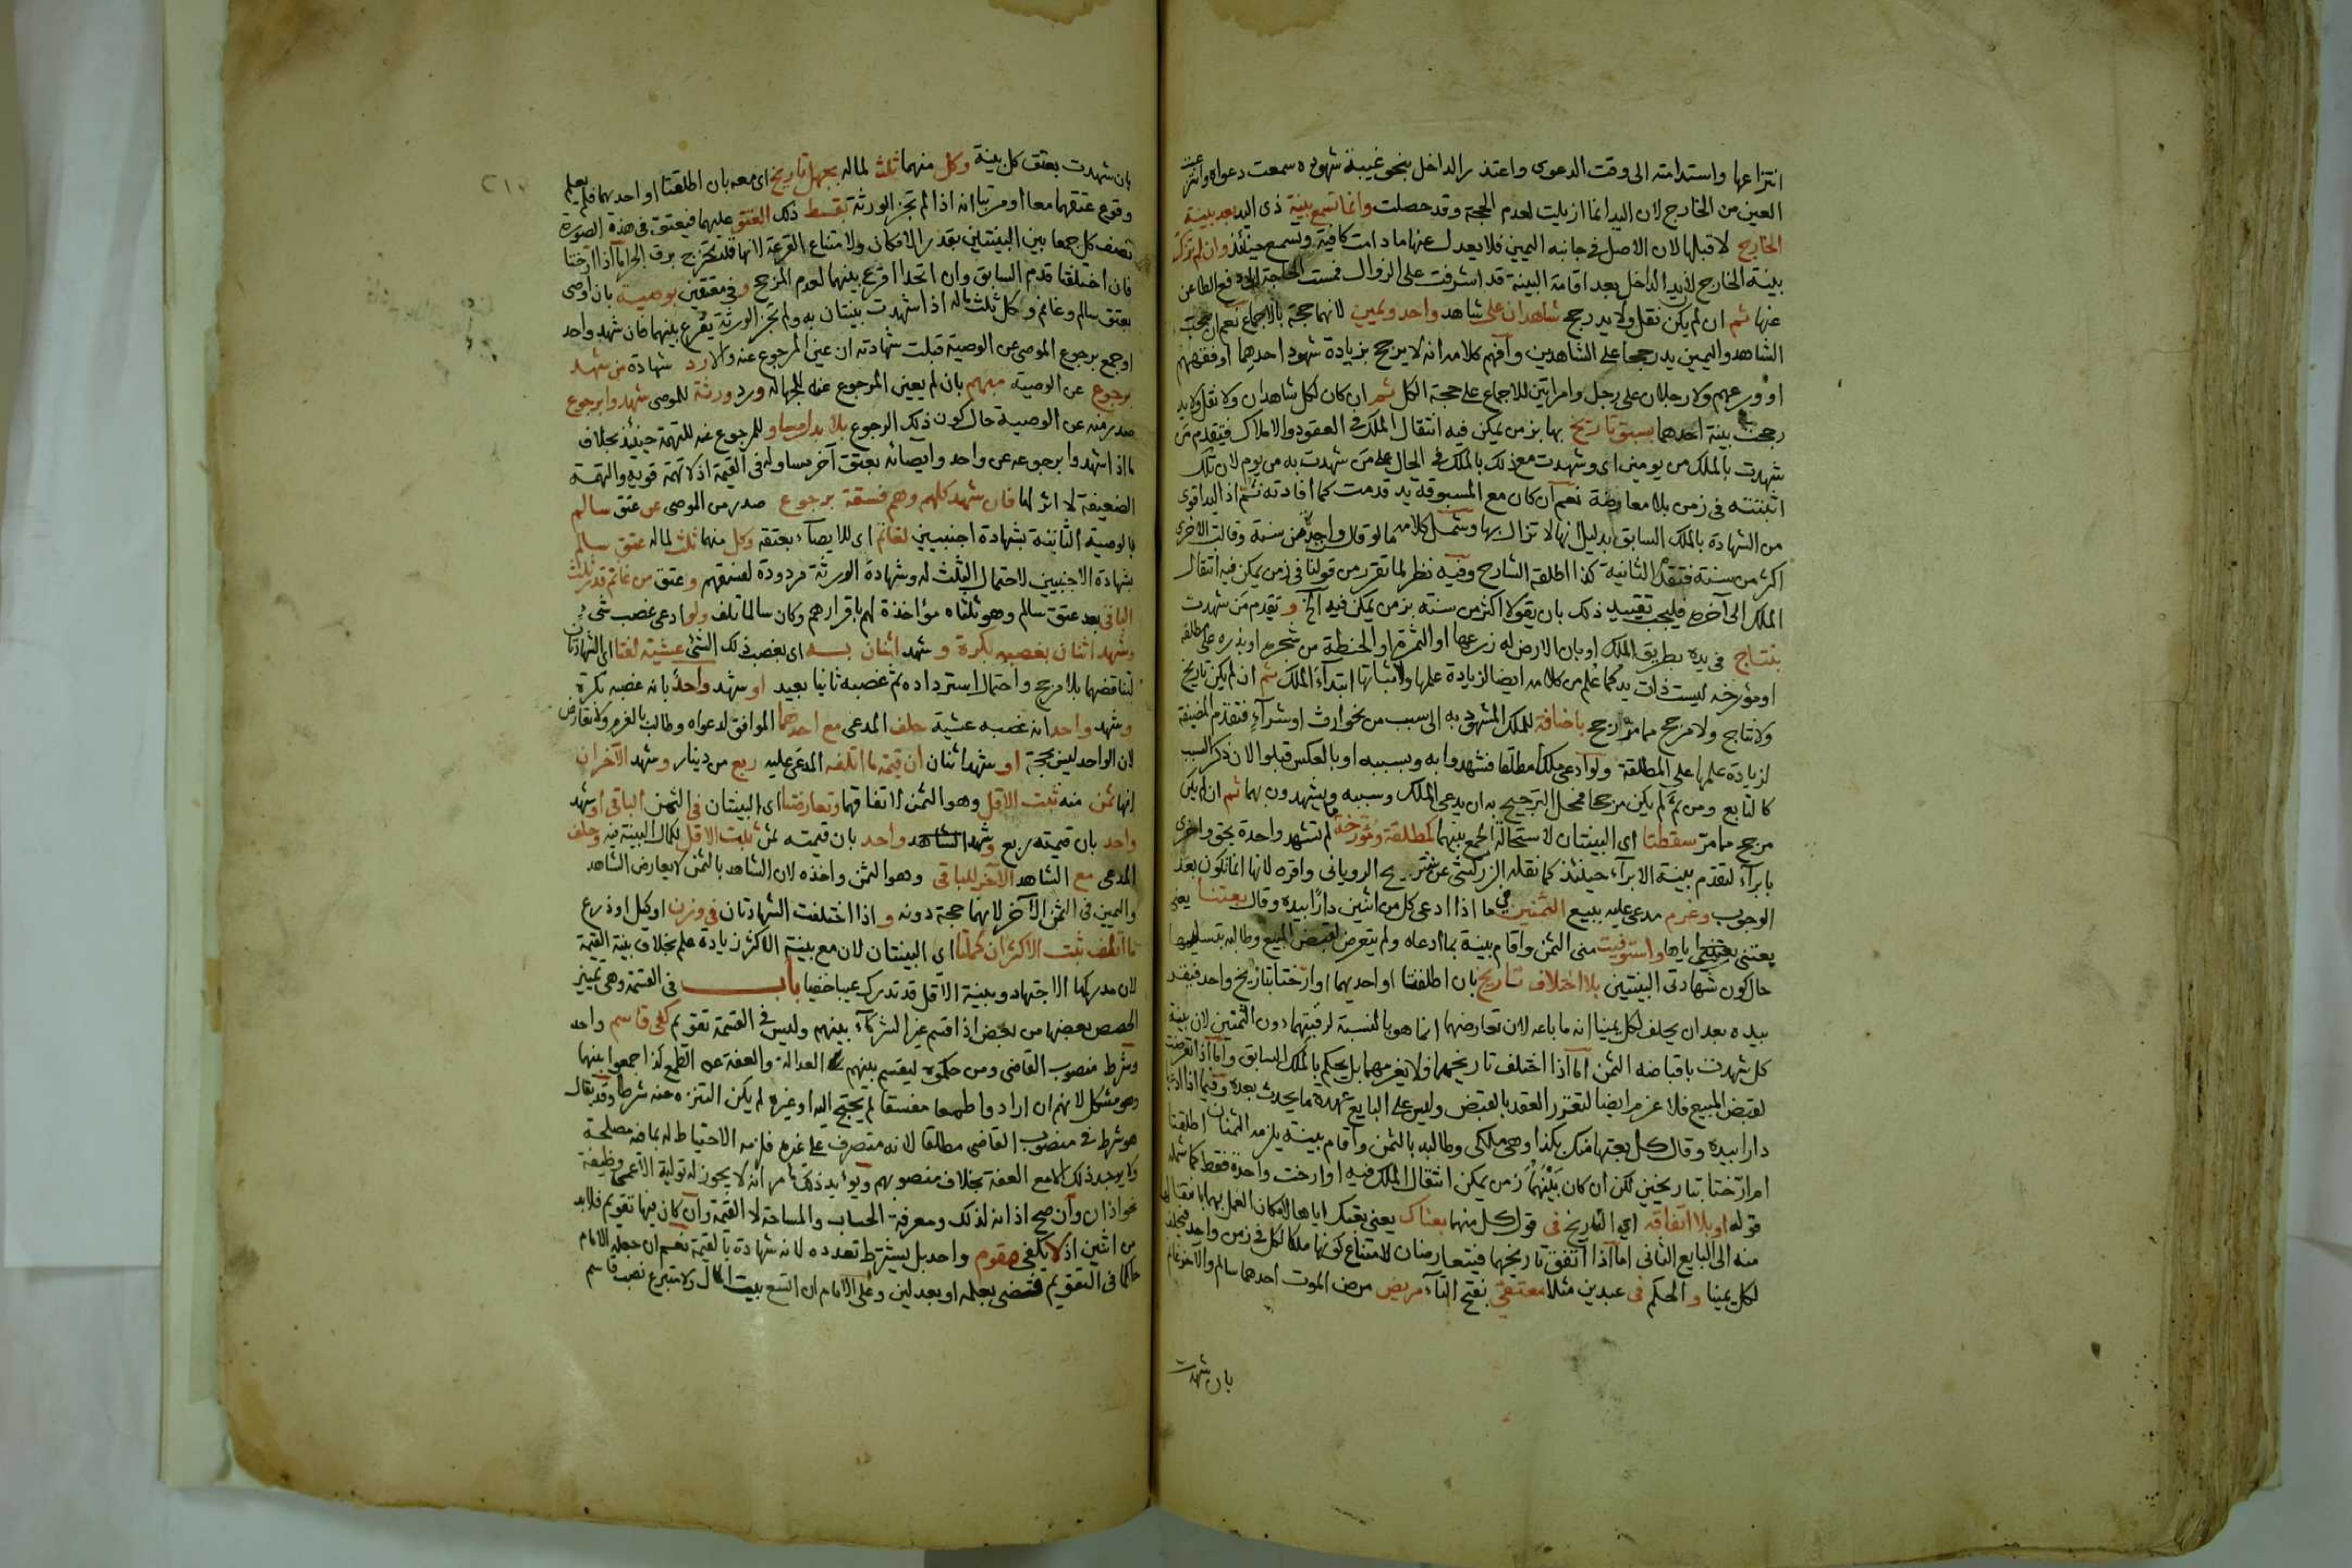 انتزاعها واستدامته الى وقت الدعوى واعتذر الداخل بنحو غيبة شهوده سمعت دعواه وانتزعت
العين من الخارج لان اليد انما ازيلت لعدم الحجة وقد حصلت وانما تسمع بينة ذي اليد بعد بينة
الخارج لا قبلها لان الاصل في جانبه اليمين فلا يعدل عنها ما دامت كافية وتسمع حينئذ وان لم تزك
بينة الخارج لان يد الداخل بعد اقامة البينة قد اشرفت على الزوال فمست الحاجة الى دفع الطاعن
عنها ثم ان لم يكن نقل ولا يد رجح شاهدان على شاهد واحد ويمين لانهما حجة بالاجماع نعم ان صحبت
الشاهد واليمين يد رجحا على الشاهدين وافهم كلامه انه لا يرجح بزيادة شهود احدهما او فقههم
او ورعهم ولا رجلان على رجل وامراتين للاجماع على حجة الكل ثم ان كان لكل شاهدان ولا نقل ولا يد
رجحت بينة احدهما بسبق تاريخ بها بزمن يمكن فيه انتقال الملك في العقود والاملاك فيتقدم من
شهدت بالملك من يومين اي وشهدت مع ذلك بالملك في الحال على من شهدت به من يوم لان تلك
اثبتته في زمن بلا معارضة نعم ان كان مع المسبوقة يد قدمت كما افادته ثم اذ اليد اقوى
من الشهادة بالملك السابق بدليل انها لا تزال بها وشمل كلامه ما لو قال واحد من سنة وقالت الاخرى
اكثر من سنة فتقدم الثانية كذا اطلقه الشارح وفيه نظر لما تقرر من قولنا في زمن يمكن فيه انتقال
الملك الى آخره فليجب تقييد ذلك بان يقولا اكثر من سنة بزمن يمكن فيه الخ و تقدم من شهدت
بنتاج في يده بطريق الملك او بان الارض له زرعها او الثمرة او الحنطة من شجره او بذره على مطلقه
او مؤرخه ليست ذات يد كما علم من كلامه ايضا لزيادة علمها ولاثباتها ابتداء الملك ثم ان لم يكن تاريخ
ولا نتاج ولا مرجح مما مر رجح باضافة للملك المشهود به الى سبب من نحو ارث او شراء فتقدم المضيفة
لزيادة علمها على المطلقة ولو ادعى ملكا مطلقا فشهدوا به وبسببه او بالعكس قبلوا الان ذكر السبب
كالتابع ومن ثم لم يكن مرجحا فمحل الترجيح به ان يدعي الملك وسببه ويشهدون بهما ثم ان لم يكن
مرجح مما مر سقطتا اي البينتان لاستحالة الجمع بينهما كمطلقة ومؤرخة ما لم تشهد واحدة بحق واخرى
بابراء لتقدم بينة الابراء حينئذ كما نقله الزركشي عن شريح الروياني واقره لانها انما تكون بعد
الوجوب وغرم مدعى عليه ببيع الثمنين فيما اذا ادعى كل من اثنين دارا بيده وقال بعتنا يعني
بعتني اياها واستوفيت مني الثمن واقام بينة بما ادعاه ولم يتعرض لقبض المبيع وطالبه بتسليمها
حال كون شهادتي البينتين بلا اختلاف تاريخ بان اطلقتا او احديهما او ارختا بتاريخ واحد فينفذ
بيده بعد ان يحلف لكل يمينا انه ما باعه لان تعارضهما انما هو بالنسبة لرقبتها دون الثمنين لان بينة
كل شهدت باقباضه الثمن اما اذا اختلف تاريخهما فلا يغرمهما بل يحكم بالملك السابق واما اذا تعرضت
لقبض المبيع فلا غرم ايضا لتقرر العقد بالقبض وليس على البايع عهدة ما يحدث بعده وفيما اذا ادعيا
دارا بيده وقال كل بعتها منك بكذا وهي ملكي وطالبه بالثمن واقام بينة يلزمه الثمنان اطلقتا
ام ارختا بتاريخين لكن ان كان بينهما زمن يمكن انتقال الملك فيه او ارخت واحدة فقط كما شمله
قوله او بلا اتفاقه اي التاريخ في قول كل منهما بعناك يعني بعتك اياها لامكان العمل بهما بانتقالها
منه الى البايع الثاني اما اذا اتفق تاريخهما فيتعارضان لامتناع كونها ملكا لكل في زمن واحد فيحلف
لكل يمينا و الحكم في عبدين مثلا معتقي بفتح التاء مريض مرض الموت احدهما سالم والاخر غانم
بان شهدت
٢١٠
بان شهدت بعتق كل بينة وكل منهما ثلث لماله بجهل تاريخ اي معه بان اطلقتا او احديهما فلم يعلم
وقوع عتقهما معا او مرتبا انه اذا لم تجز الورثة تقسيط ذلك العتق عليهما فيعتق في هذه الصورة
نصف كل جمعا بين البينتين بقدر الامكان ولامتناع القرعة لانها قد تخرج برق الحر اما اذا ارختا
فان اختلفتا قدم السابق وان اتحدا اقرع بينهما لعدم المرجح وفي معتقين بوصية بان اوصى
بعتق سالم وغانم وكل ثلث ماله اذا شهدت بينتان به ولم تجز الورثة يقرع بينهما فان شهد واحد
او جمع برجوع الموصي عن الوصية قبلت شهادته ان عين المرجوع عنه والا رد شهادة من شهد
برجوع عن الوصية مبهم بان لم يعين المرجوع عنه للجهالة ورد ورثة للموصي شهدوا برجوع
صدر منه عن الوصية حال كون ذلك الرجوع بلا بدل مساو للمرجوع عنه للتهمة حينئذ بخلاف
ما اذا شهدوا برجوعه عن واحد وايصائه بعتق آخر مساو له في القيمة اذ لا تهمة قوية والتهمة
الضعيفة لا اثر لها فان شهد كلهم وهم فسقة برجوع صدر من الموصي عن عتق سالم
بالوصية الثانية بشهادة اجنبيين لغانم اي للايصاء بعتقه وكل منهما ثلث لماله عتق سالم
بشهادة الاجنبيين لاحتمال الثلث له وشهادة الورثة مردودة لفسقهم و عتق من غانم قدر ثلث
الباقي بعد عتق سالم وهو ثلثاه مؤاخذة لهم باقرارهم وكان سالما تلف ولو ادعى غصب شيء
وشهد اثنان بغصبه بكرة و شهد اثنان به اي بغصب ذلك الشيء عشية لغتا اي الشهادتان
لتناقضهما بلا مرجح واحتمال استرداده ثم غصبه ثانيا بعيد او شهد واحد بانه غصبه بكرة
وشهد واحد انه غصبه عشية حلف المدعي مع احدهما الموافق لدعواه وطالب بالغرم ولا تعارض
لان الواحد ليس بحجة او شهد اثنان ان قيمة ما اتلفه المدعى عليه ربع من دينار وشهد الآخران
انها ثمن منه ثبت الاقل وهو الثمن لاتفاقهما وتعارضتا اي البينتان في الثمن الباقي او شهد
واحد بان قيمته ربع وشهد الشاهد واحد بان قيمته ثمن ثبت الاقل لكمال البينة فيه وحلف
المدعي مع الشاهد الآخر للباقي وهو الثمن واخذه لان الشاهد بالثمن لا يعارض الشاهد
واليمين في الثمن الآخر لانهما حجة دونه و اذا اختلفت الشهادتان في وزن او كيل او ذرع
ما اتلف ثبت الاكثر ان كملتا اي البينتان لان مع بينة الاكثر زيادة علم بخلاف بينة القيمة
لان مدركها الاجتهاد وبينة الاقل قد تدرك عيبا خفيا باب في القسمة وهي تمييز
الحصص بعضها من بعض اذا اقسم غير الشركاء بينهم وليس في القسمة تقويم كفى قاسم واحد
وشرط منصوب القاضي ومن حكموه ليقسم بينهم العدالة والعفة عن الطمع كذا جمعوا بينهما
وهو مشكل لانهم ان ارادوا طمعا مفسقا لم يحتج اليه او غيره لم يكن التنزه عنه شرطا وقد يقال
هو شرط في منصوب القاضي مطلقا لانه متصرف على غيره فلزمه الاحتياط له بما فيه مصلحة
ولا يوجد ذلك الا مع العفة بخلاف منصوبهم ويؤيد ذلك ما مر انه لا يجوز له تولية الاعمى وظيفة
نحو اذان وان صح اذانه لذلك ومعرفة الحساب والمساحة لا القيمة وان كان فيها تقويم فلا بد
من اثنين اذ لا يكفي مقوم واحد بل يشترط تعدده لانه شهادة بالقيمة نعم ان جعله الامام
حاكما في التقويم فتضى بعلمه او بعدلين وعلى الامام ان اتسع بيت المال ولا متبرع نصب قاسم